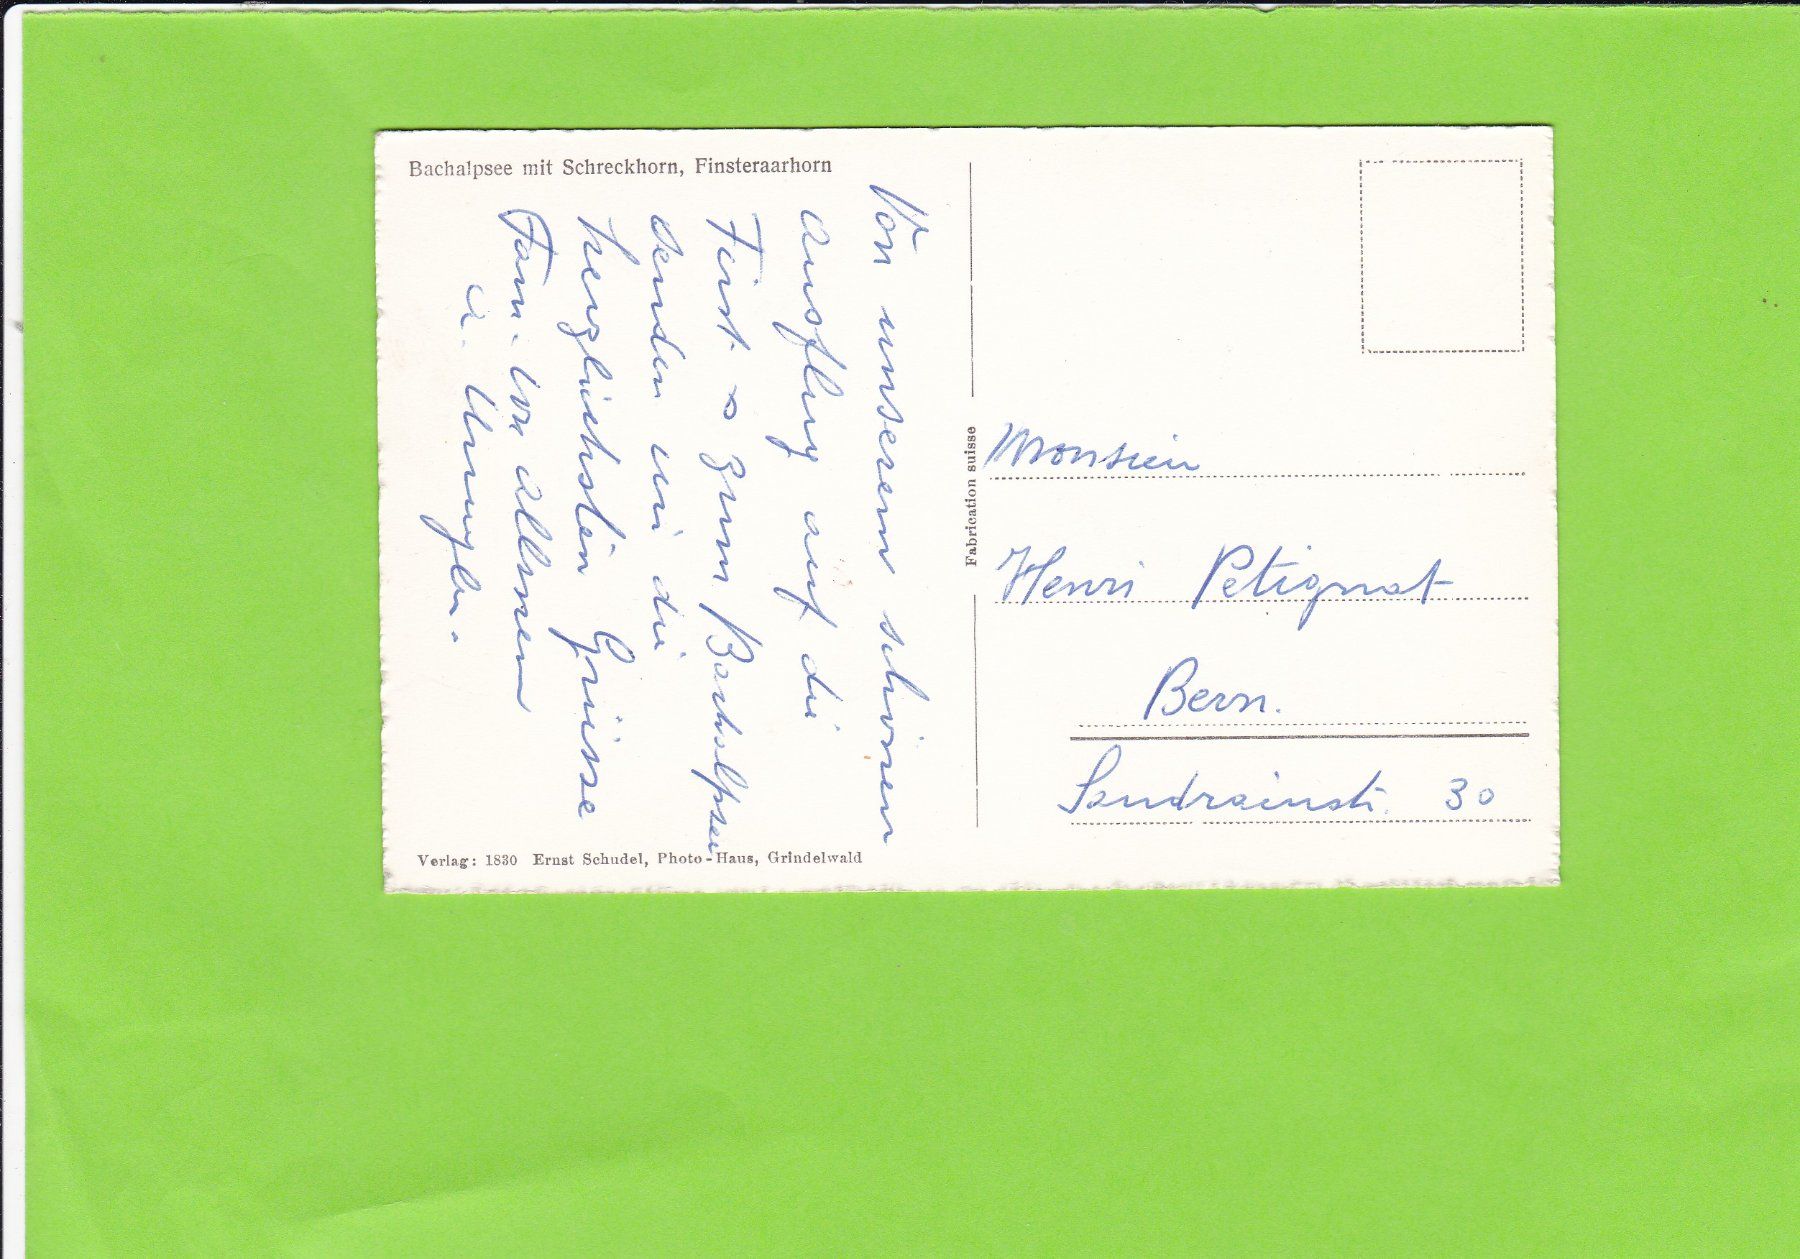 Bachalpsee mit Schreckhorn, Finsteraarhorn
Von unserem schönen
Ausflug auf die
First & zum Bachalpsee
senden wir die
herzlichsten Grüsse
Fam. von allmen
Verlag: 1830 Ernst Schudel, Photo-Haus, Grindelwald
Fabrication suisse
Monsieur
Henri Petignat
Bern.
Sandrainstr. 30